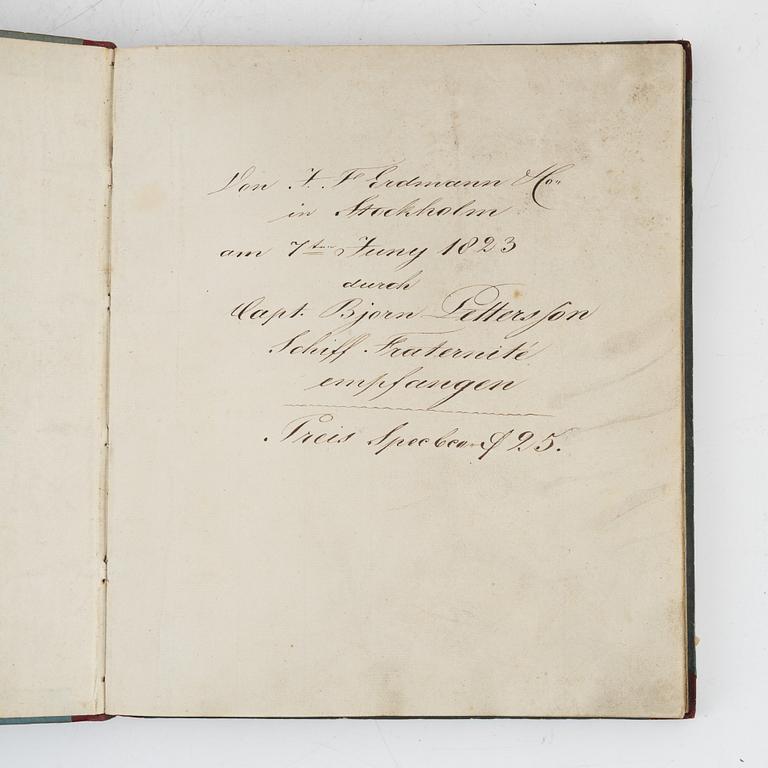 Von J. F. Erdmann & Co
in Stockholm
am 7ten Juny 1823
durch
Capt. Bjorn Pettersson
Schiff Fraternité
empfangen
Preis 25.